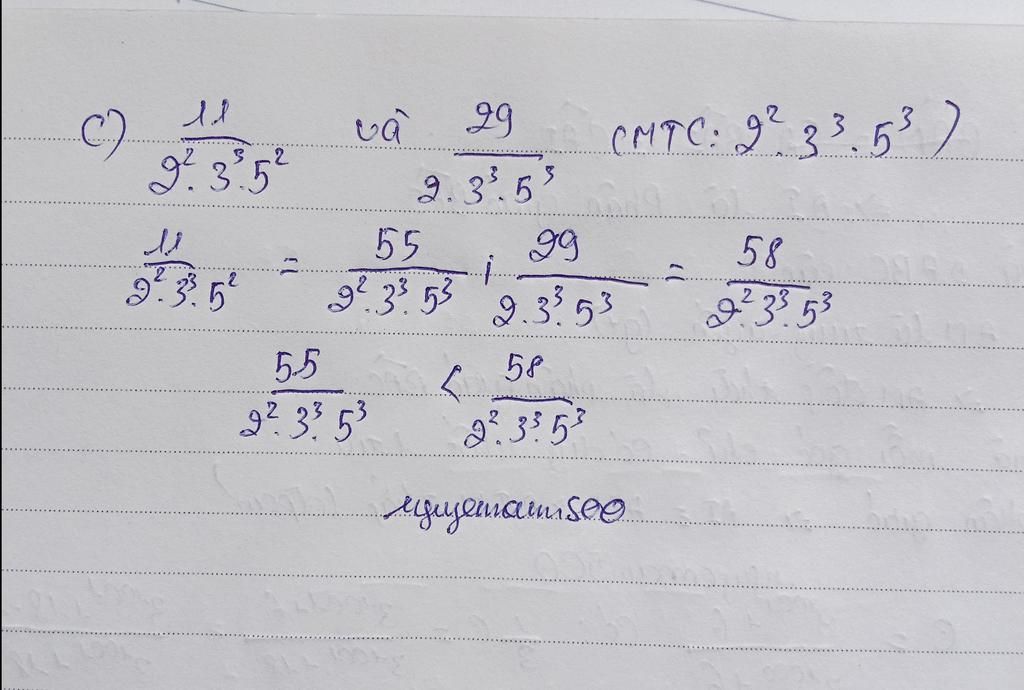 c) 11/(2².3³.5²) và 29/(2.3³.5³) (MTC: 2².3³.5³)
11/(2².3³.5²) = 55/(2².3³.5³) ; 29/(2.3³.5³) = 58/(2².3³.5³)
55/(2².3³.5³) < 58/(2².3³.5³)